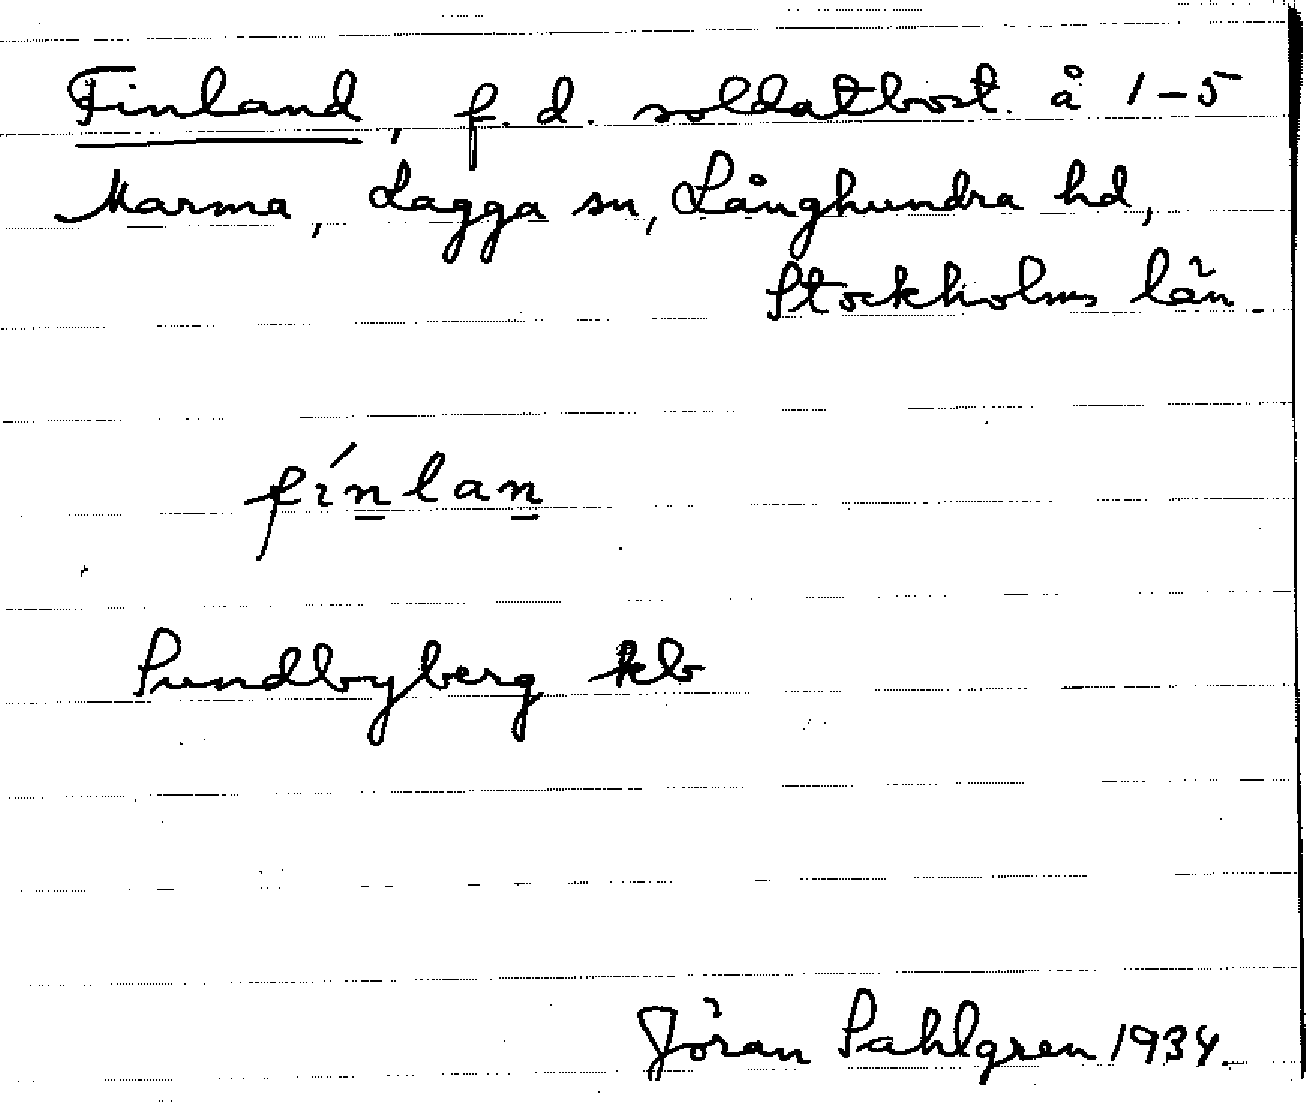 Finland, f. d. soldatbost. å 1-5
Marma, Lagga sn, Långhundra hd,
Stockholms län.
fínlan
Sundbyberg kb
Jöran Sahlgren 1934.